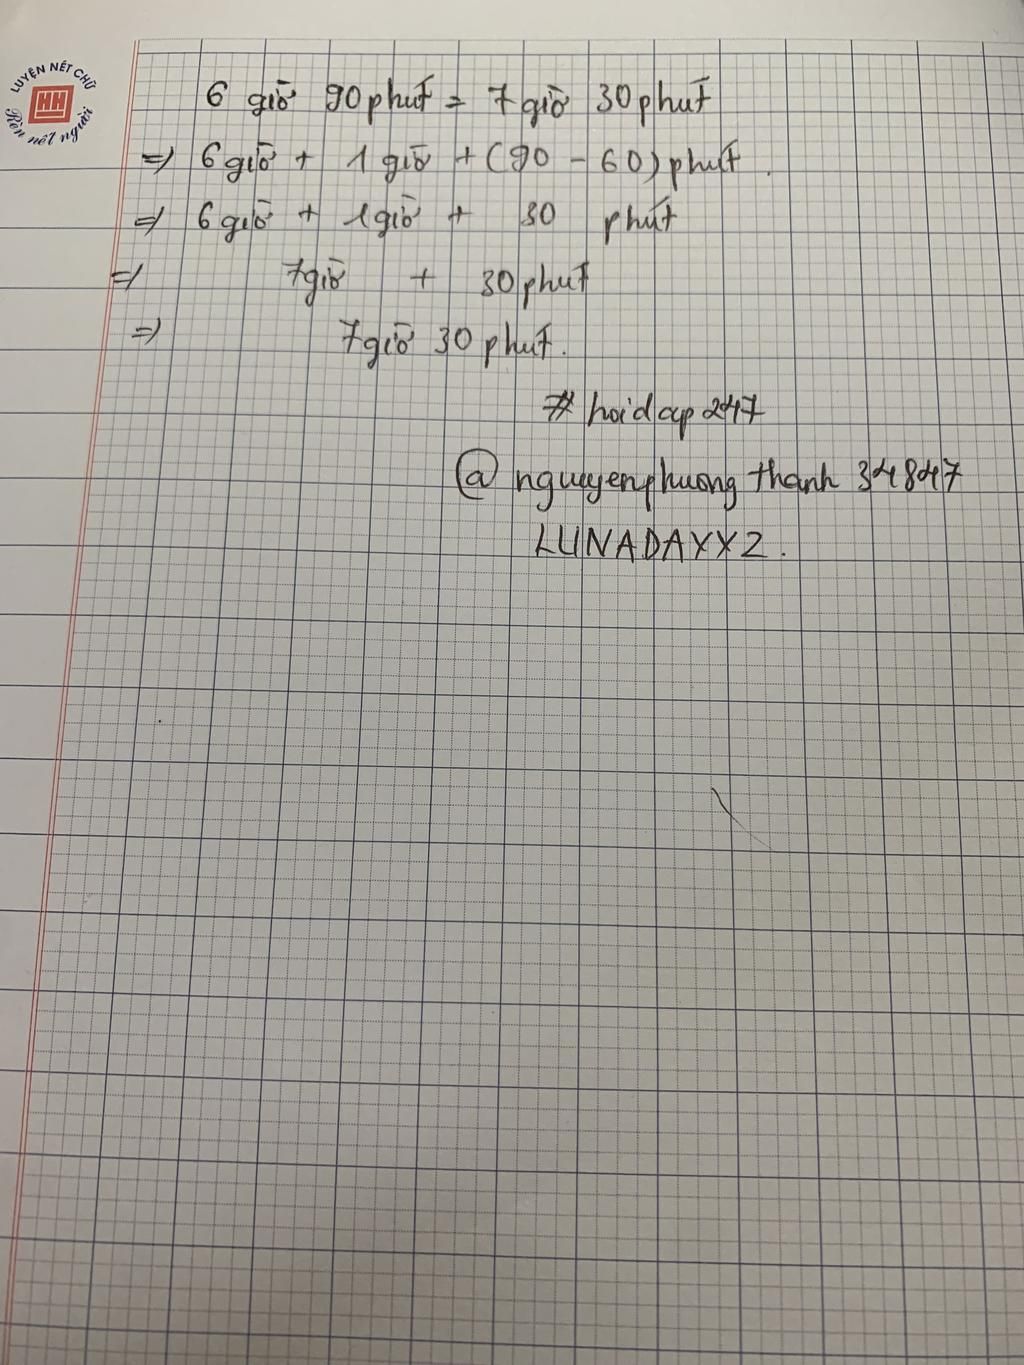 LUYỆN NÉT CHỮ
HH
Rèn nết người
6 giờ 90 phút = 7 giờ 30 phút
=> 6 giờ + 1 giờ + (90 - 60) phút.
=> 6 giờ + 1 giờ + 30 phút
=> 7 giờ + 30 phút
=> 7 giờ 30 phút.
# hoidap247
@ nguyenphuong thanh 34847
LUNADAYXZ.